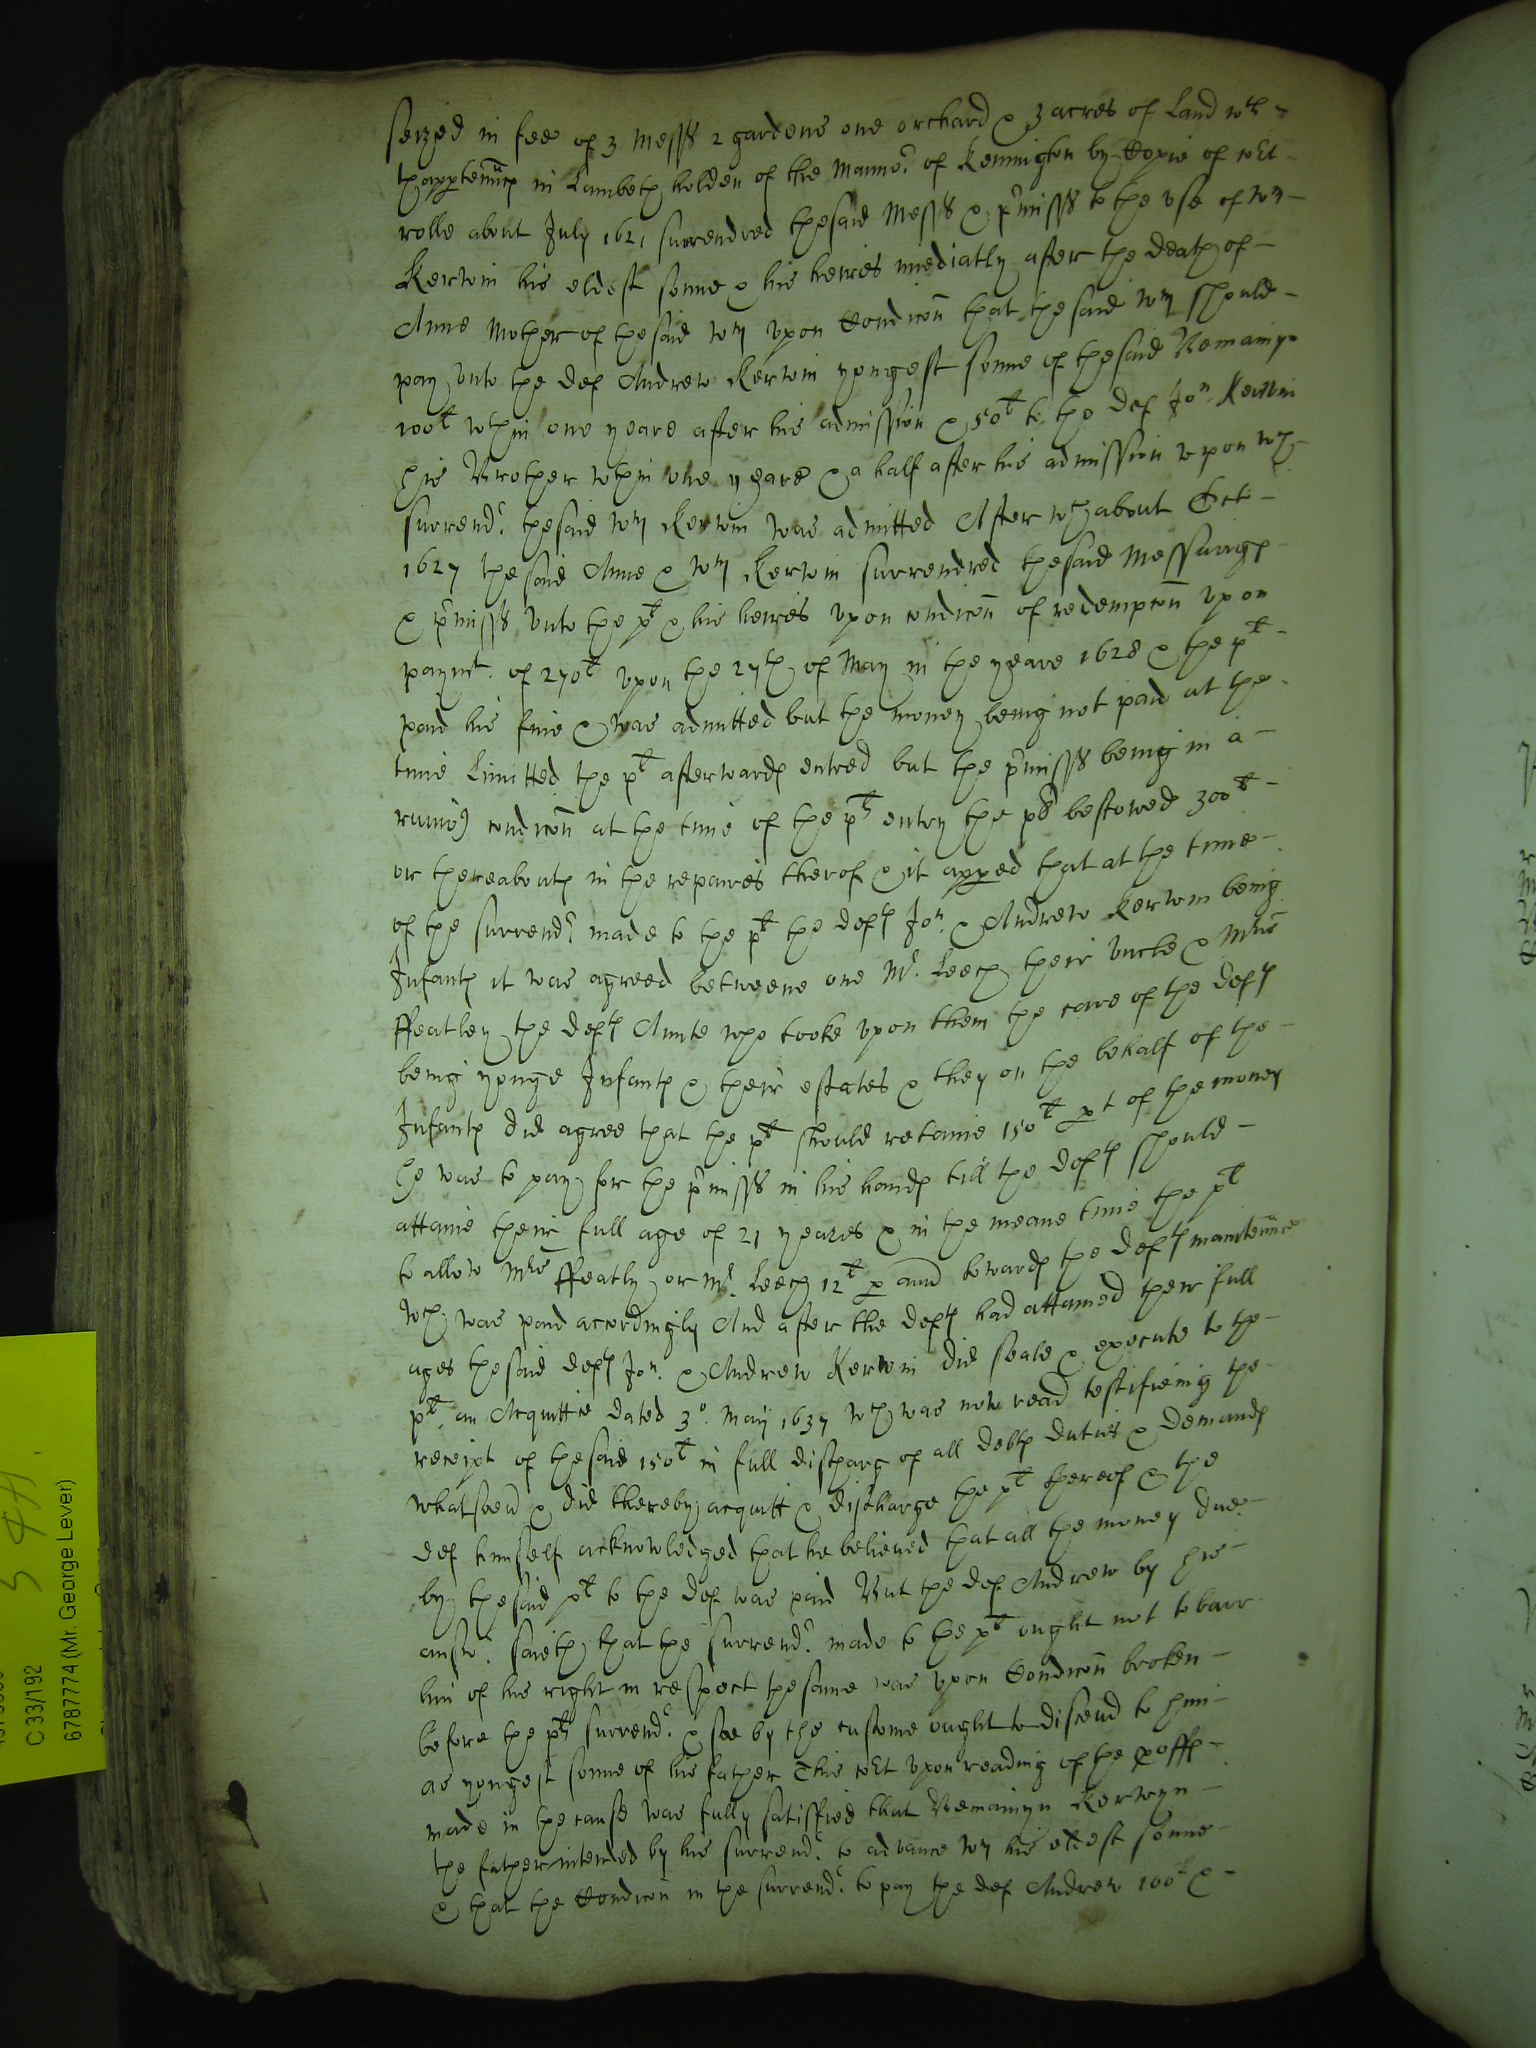 seized in fee of 3 Messs 2 gardens one orchard & 3 acres of Land wth
thapptennncs in Lambeth holden of the Manno.r of Kennington by Copie of Ct
rolle about July 1621 surrendred the said Messs & pr misss to the use of Wm
Kerwin his eldest sonne & his heires imediatly after the death of
Anne Mother of the said Wm upon Condicon that the said Wm should
pay unto the def Andrew Kerwin yongest sonne of the said Bemainyn
100l wthin one yeare after his admission & 50l to the def Jon. Kerwin
his Brother wthin one yeare & a half after his admission upon wch
surrend.r the said Wm Kerwin was admitted After wch about Oct
1627 the said Anne & Wm Kerwin surrendred the said Messuages
& pr misss unto the plt & his heires upon condicon of redempcon upon
paymt. of 270l upon the 27th of May in the yeare 1628 & the plt
paid his fine & was admitted but the money being not paid at the
time Limitted the plt afterwards entred but the pr misss being in a
ruino9 condicon at the time of the plts entry the plt bestowed 300l
or thereabouts in the repaires therof & it appred that at the time
of the surrend.r made to the plt the defts Jon. & Andrew Kerwin being
Infants it was agreed betweene one Mr. Leech their Uncle & Mris
ffeatley the defts Aunte who tooke upon them the care of the defts
being yonge Infants & their estates & they on the behalf of the
Infants did agree that the plt should retaine 150l pt of the money
he was to pay for the pr misss in his hands till the defts should
attaine their full age of 21 yeares & in the meane time the plt
to allow Mris ffeatly or Mr. Leech 12l p ann towards the defts maintennce
wch was paid accordingly And after the defts had attained their full
ages the said defts Jon. & Andrew Kerwin did seale & execute to the
plt. an Acquittce dated 3o. May 1637 wch was now read testifieing the
receipt of the said 150l in full discharg of all debts duties & demands
whatsoevr & did thereby acquitt & discharge the plt thereof & the
def himself acknowledged that he believed that all the money due
by the said plt to the def was paid But the def Andrew by his
answ.r saieth that the surrend.r made to the plt ought not to barr
him of his right in respect the same was upon Condicon broken
before the plts surrend.r & soe by the custome ought to discend to him
as yongest sonne of his father This Ct upon reading of the proffs
made in the cause was fully satisfied that Bemainyn Kerwyn
the father intended by his surrend.r to advance Wm his eldest sonne
& that the Condicon in the surrend.r to pay the def Andrew 100l &
C 33/192
6787774 (Mr. George Lever)